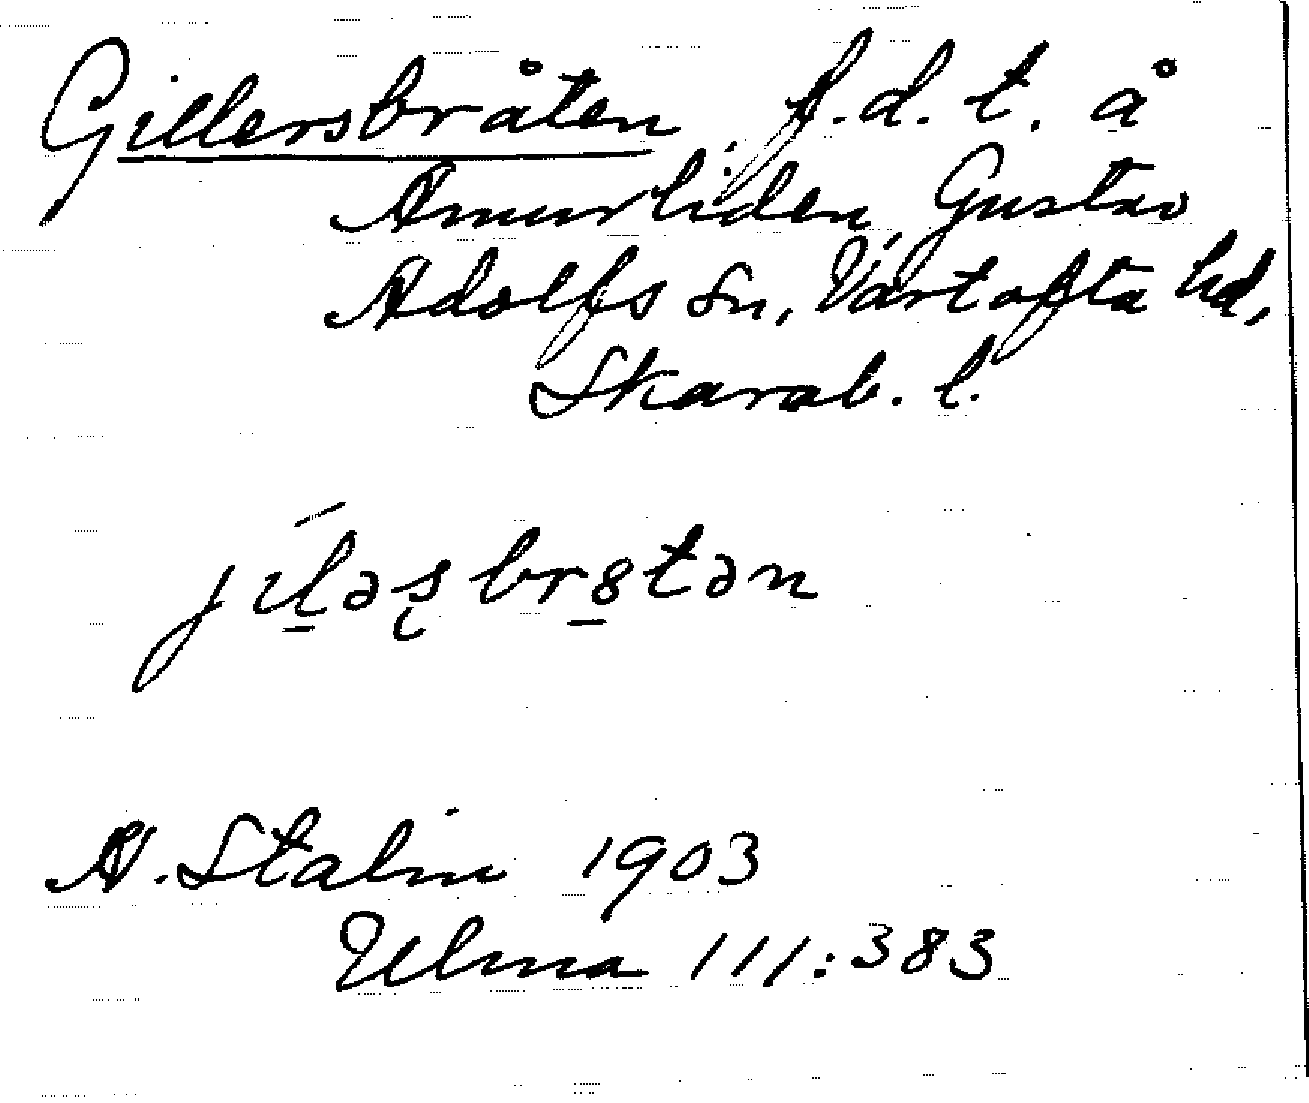 Gillersbråten, f.d.t. å
Amurliden Gustav
Adolfs sn, Vartofta hd,
Skarab. l.
jiləʂbr8tən
A. Stalin 1903
Ulma 111:383